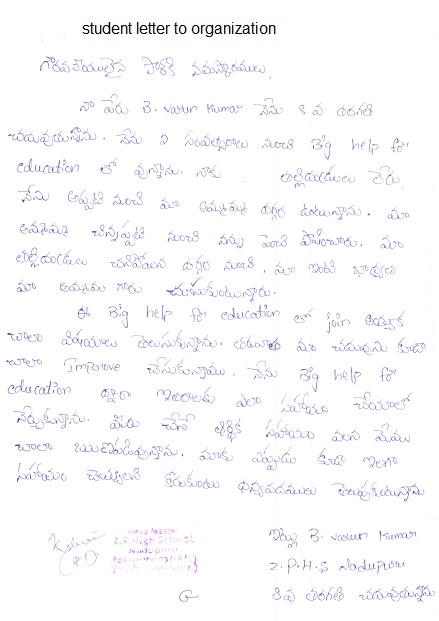 student letter to organization
గౌరవనీయులైన పార్థి నమస్కారములు,
నా పేరు B. Varun Kumar నేను 8 వ తరగతి
చదువుచున్నాను. నేను 2 సంవత్సరాలు నుంచి Big help for
education లో వున్నాను. నాకు తల్లిదండ్రులు లేరు.
నేను అప్పటి నుంచి మా అమ్మమ్మ దగ్గర ఉంటున్నాను. మా
అమ్మమ్మ చిన్నప్పటి నుంచి నన్ను పెంచి పోషించారు. మా
తల్లిదండ్రులు చనిపోయిన దగ్గర నుంచి, మా ఇంటి బాధ్యత
మా అమ్మమ్మ గారు చూసుకుంటున్నారు.
ఈ Big help for education లో join అయ్యాక
చాలా విషయాలు తెలుసుకున్నాను. తరువాత మా చదువును కూడా
చాలా Improve చేసుకున్నాము. నేను Big help for
education ద్వారా ఇతరులకు ఎలా సహాయం చేయాలో
నేర్చుకున్నాను. మీరు చేసే ఆర్థిక సహాయం వలన మేము
చాలా ఋణపడివున్నాను. మాకు ఎప్పుడు కూడా ఇలాగా
సహాయం చెయ్యాలని కోరుకుంటు ధన్యవదములు తెలుపుకుంటున్నాను
Head Master
Z.P. High School
Nadupuru
ఇట్లు B. Varun Kumar
Z.P.H.S Nadupuru
8 వ తరగతి చదువుతున్నాను